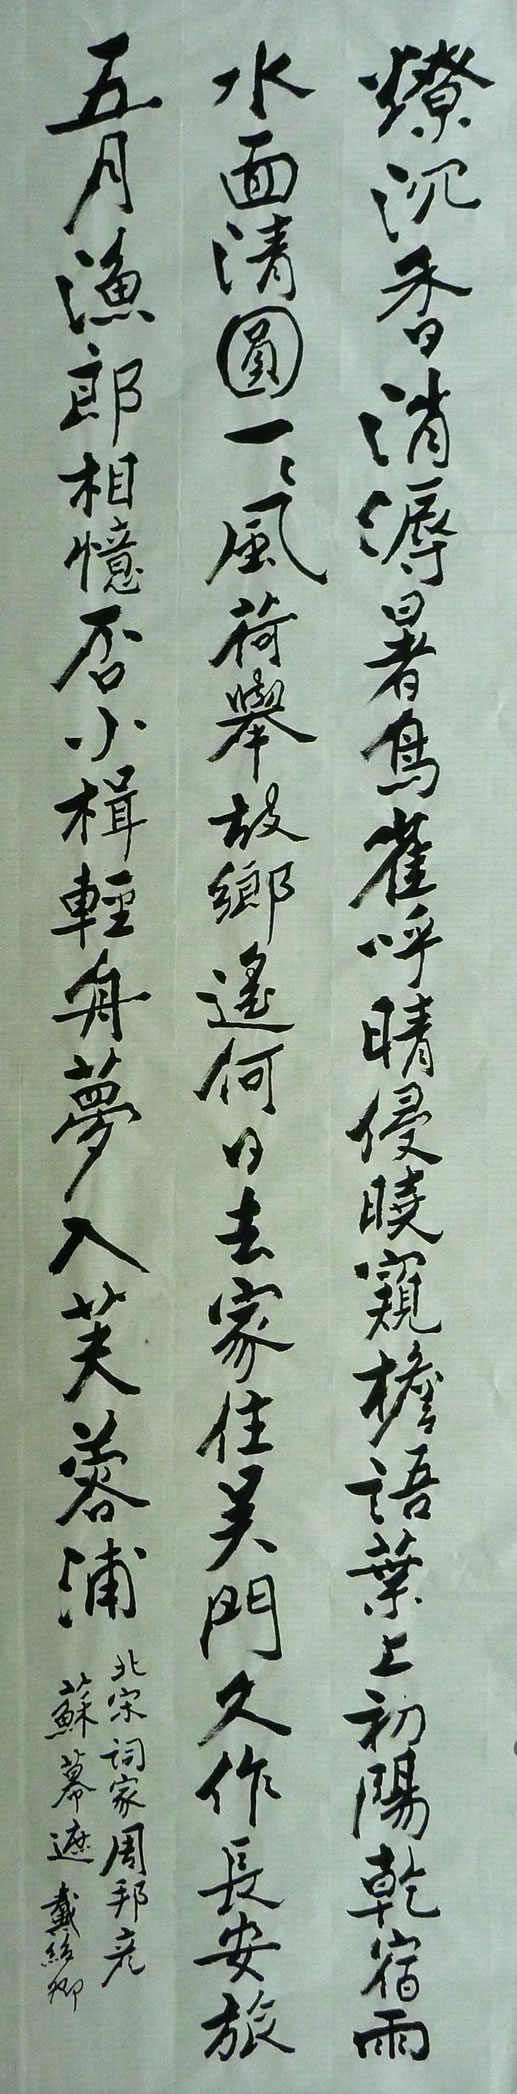 燎沉香消溽暑鳥雀呼晴侵曉窺檐語葉上初陽乾宿雨
水面清圓一一風荷舉故鄉遙何日去家住吴門久作長安旅
五月漁郎相憶否小楫輕舟夢入芙蓉浦
北宋詞家周邦彦
蘇幕遮 戴紹卿